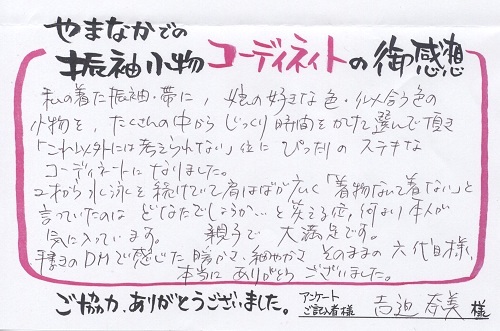 やまなかでの
振袖小物コーディネイトの御感想
私の着た振袖・帯に、娘の好きな色・似合う色の
小物を、たくさんの中からじっくり時間をかけて選んで頂き
「これ以外には考えられない」位にぴったりのステキな
コーディネートになりました。
水泳を続けていて肩はばが広く「着物なんて着ない」と
言っていたのはどなたでしょうか…と笑える位、何より本人が
気に入っています。 親子で大満足です。
手書きのDMで感じた暖かさ・細やかさそのままの六代目様、
本当にありがとうございました。
ご協力、ありがとうございました。
アンケートご記入者様 様